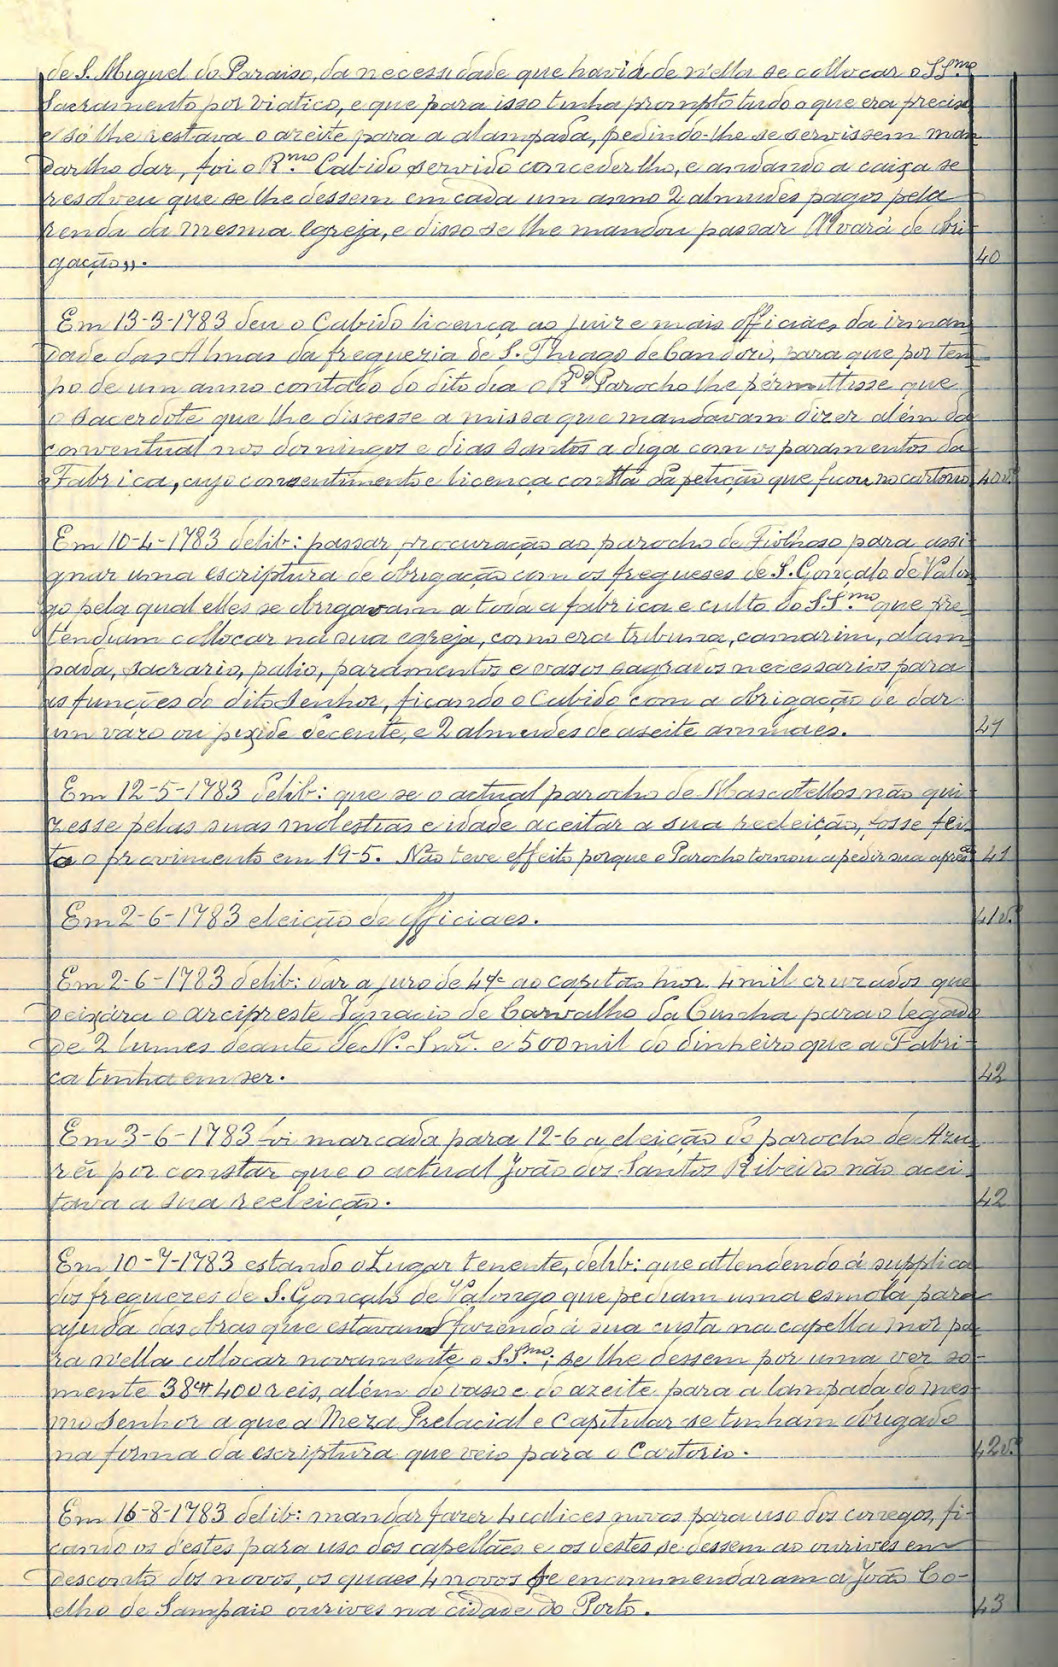 de S. Miguel do Paraiso, da necessidade que havia de n'ella se collocar o SS.mo
Sacramento por viatico, e que para isso tinha prompto tudo o que era preciso
e só lhe restava o azeite para a alampada, pedindo-lhe se servissem man-
darlho dar, foi o R.mo Cabido servido concederlho, e andando a caixa se
resolveu que se lhe dessem em cada um anno 2 almudes pagos pela
renda da mesma Egreja, e disso se lhe mandou passar Alvará de obri-
gação,,. 40
Em 13-3-1783 deu o Cabido licença ao juiz e mais officiaes da irman-
dade das Almas da freguezia de S. Thiago de Candozo, para que por tem-
po de um anno contado do dito dia o R.do Parocho lhe permittisse que
o sacerdote que lhe dissesse a missa que mandavam dizer além da
conventual nos domingos e dias santos a diga com os paramentos da
Fabrica, cujo consentimento e licença consta da petição que ficou no cartorio 40v.º
Em 10-4-1783 delib: passar procuração ao parocho de Fiolhoso para assi-
gnar uma escriptura de obrigação com os freguezes de S. Gonçalo de Valon-
go pela qual elles se obrigavam a toda a fabrica e culto do SS.mo que pre-
tendiam collocar na sua egreja, como era tribuna, camarim, alam-
pada, sacrario, palio, paramentos e vasos sagrados necessarios para
as funções do dito Senhor, ficando o Cabido com a obrigação de dar
um vazo ou pixide decente, e 2 almudes de aseite annuaes. 41
Em 12-5-1783 delib: que se o actual parocho de Mascotellos não qui-
zesse pelas suas molestias e idade aceitar a sua reeleição, fosse fei-
ta o provimento em 19-5. Não teve effeito porque o Parocho tornou a pedir sua apres.ão 41
Em 2-6-1783 eleição de officiaes. 41v.º
Em 2-6-1783 delib: dar a juro de 4% ao capitão mor 4 mil cruzados que
deixára o arcipreste Ignacio de Carvalho da Cunha para o legado
de 2 lumes deante de N. Snr.ª e 500 mil do dinheiro que a Fabri-
ca tinha em ser. 42
Em 3-6-1783 foi marcada para 12-6 a eleição de parocho de Azu-
rei por constar que o actual João dos Santos Ribeiro não acei-
tava a sua reeleição. 42
Em 10-7-1783 estando o Lugar tenente, delib: que attendendo á supplica
dos freguezes de S. Gonçalo de Valongo que pediam uma esmola para
ajuda das obras que estavam fazendo á sua custa na capella mor pa-
ra n'ella collocar novamente o SS.mo; se lhe dessem por uma vez so-
mente 38$400 reis, além do vaso e do azeite para a lampada do mes-
mo Senhor a que a Meza Prelacial e Capitular se tinham obrigado
na forma da escriptura que veio para o Cartorio. 42v.º
Em 16-8-1783 delib: mandar fazer 4 calices novos para uso dos conegos, fi-
cando os d'estes para uso dos capellães e os destes se dessem ao ourives em
desconto dos novos, os quaes 4 novos se encommendaram a João Co-
elho de Sampaio ourives na cidade do Porto. 43